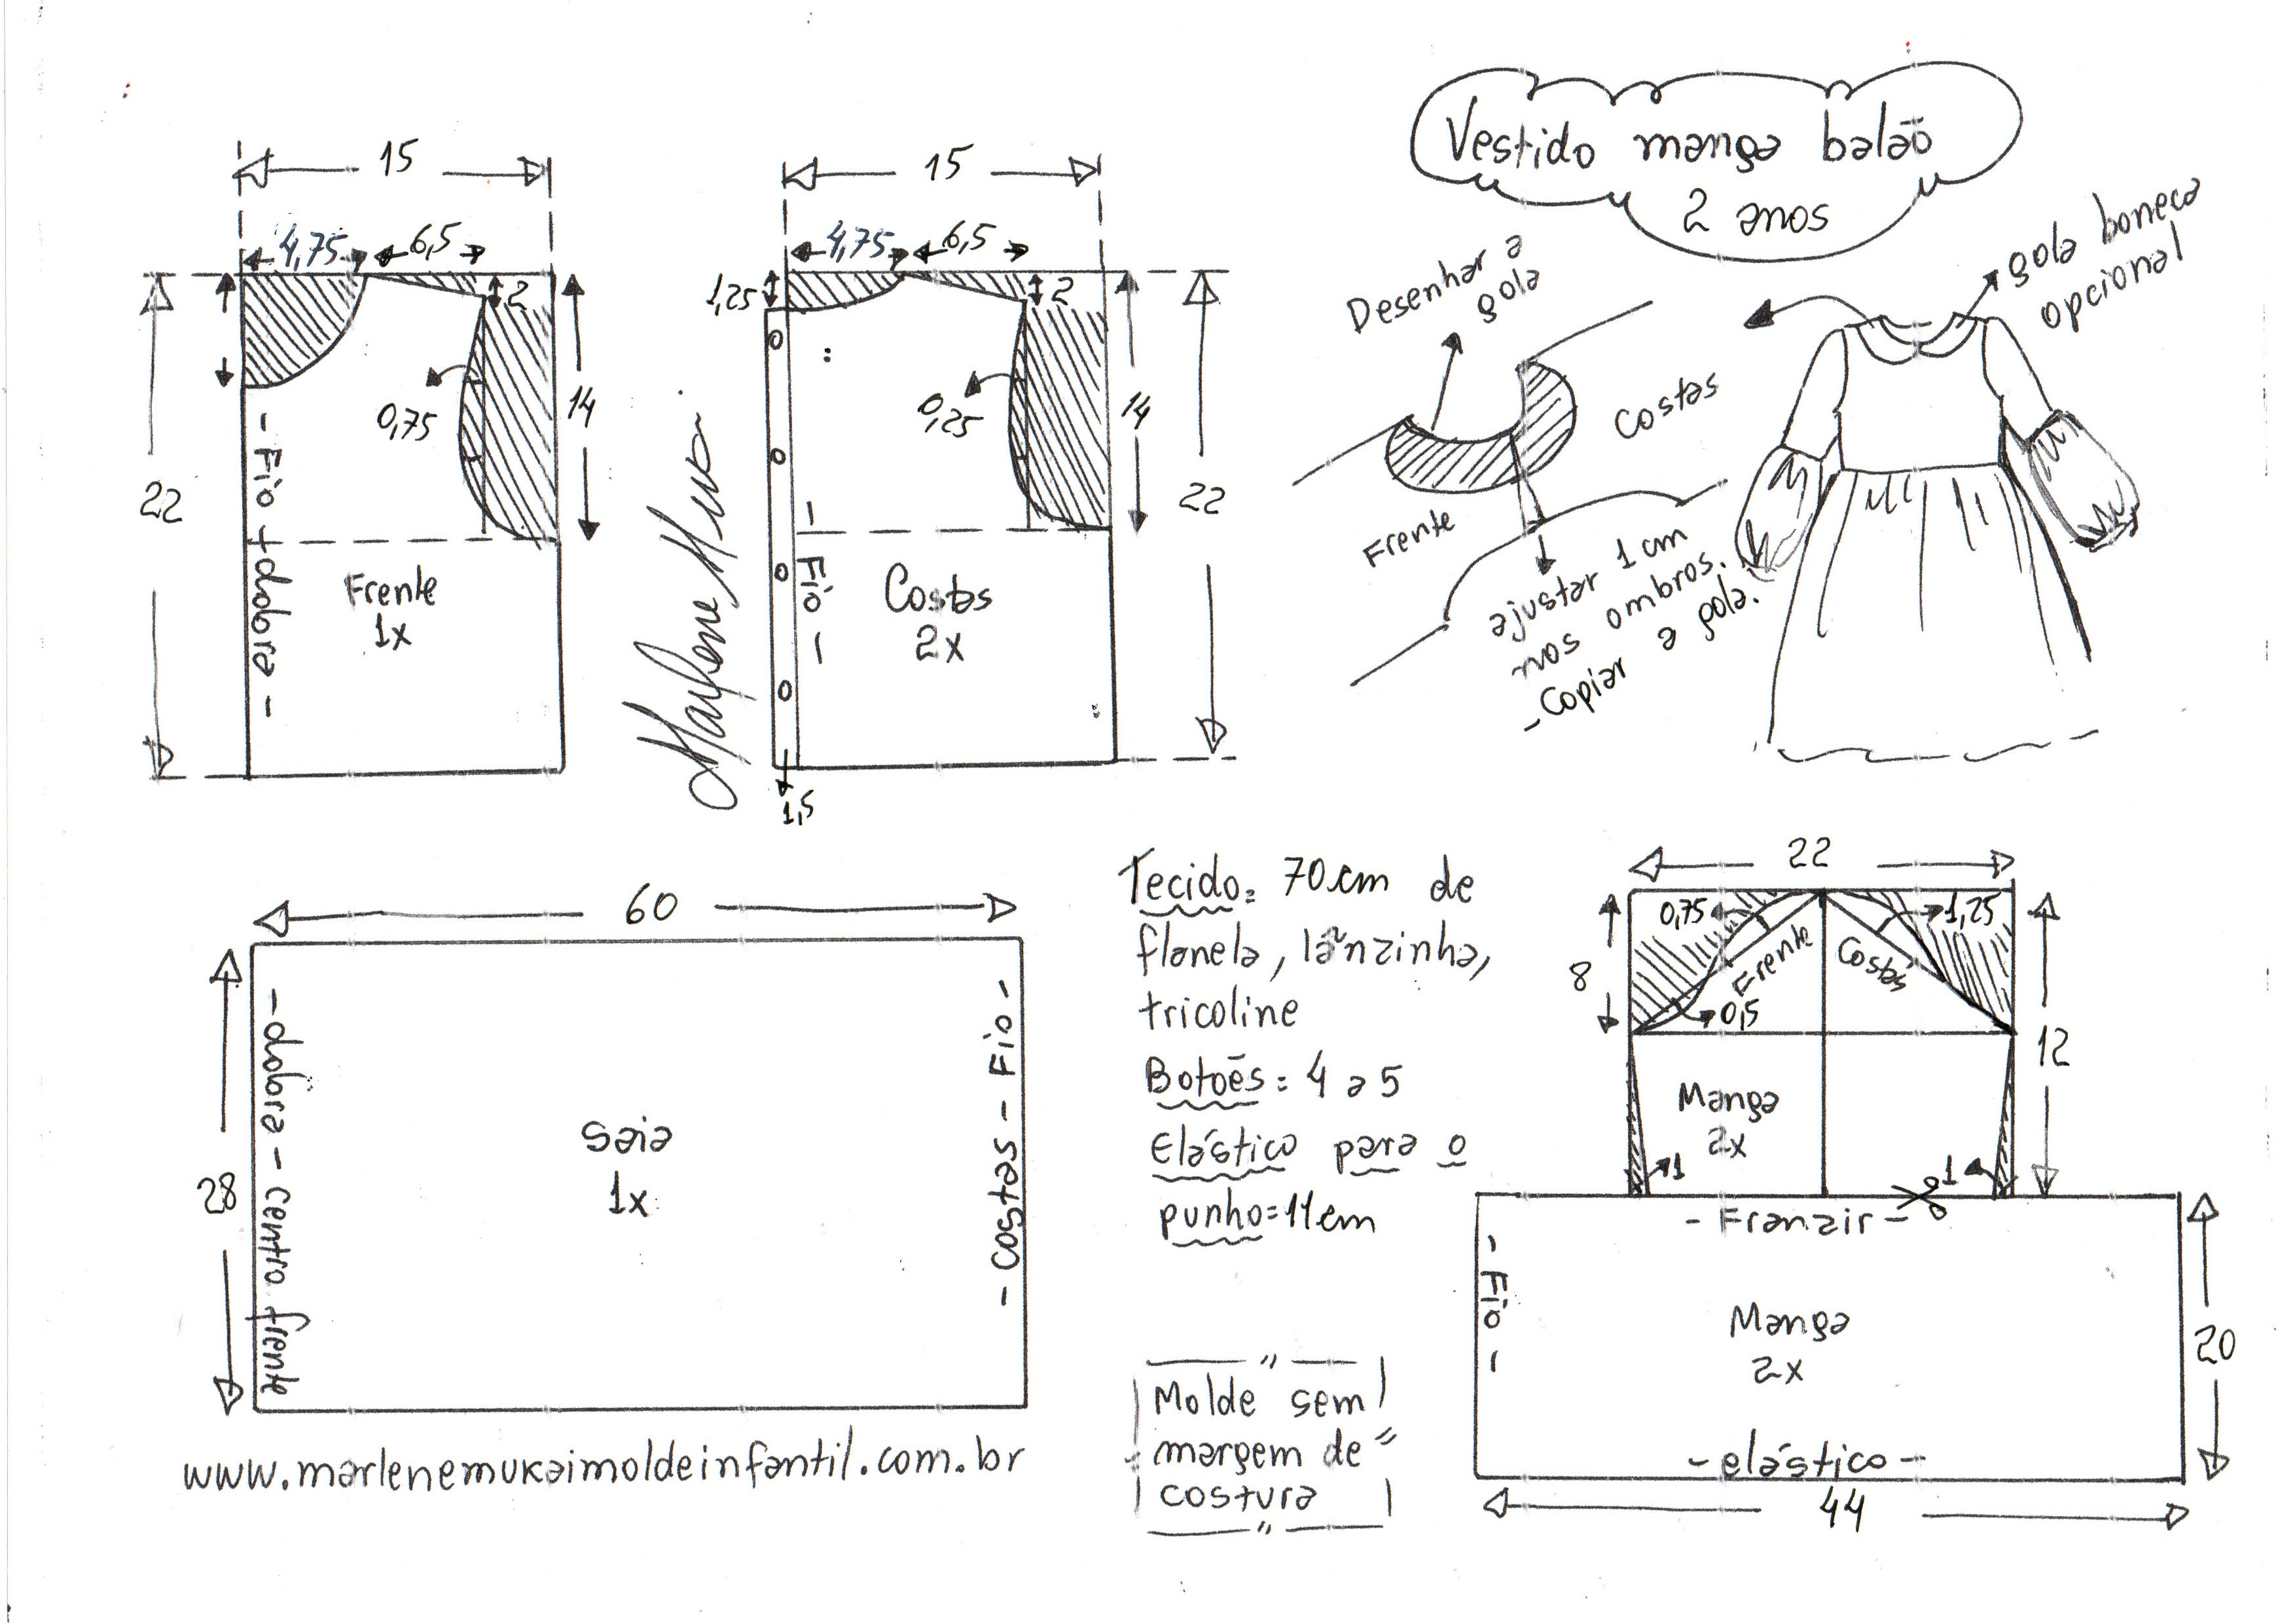 Vestido manga balão
2 anos
15
4,75
6,5
2
22
0,75
14
- Fio + dobra -
Frente
1x
15
4,75
6,5
1,25
2
0,25
14
22
- Fio -
Costas
2x
1,5
Desenhar a
gola
gola boneca
opcional
Costas
Frente
ajustar 1 cm
nos ombros.
- Copiar a gola.
60
28
- dobra - centro frente
Saia
1x
- Costas - Fio -
www.marlenemukaimoldeinfantil.com.br
Tecido= 70cm de
flanela, lãnzinha,
tricoline
Botões: 4 a 5
Elástico para o
punho=14cm
Molde sem
margem de
costura
22
0,75
1,25
8
Frente
Costas
0,5
12
Manga
2x
1
1
- Franzir -
- Fio -
Manga
2x
20
- elástico -
44